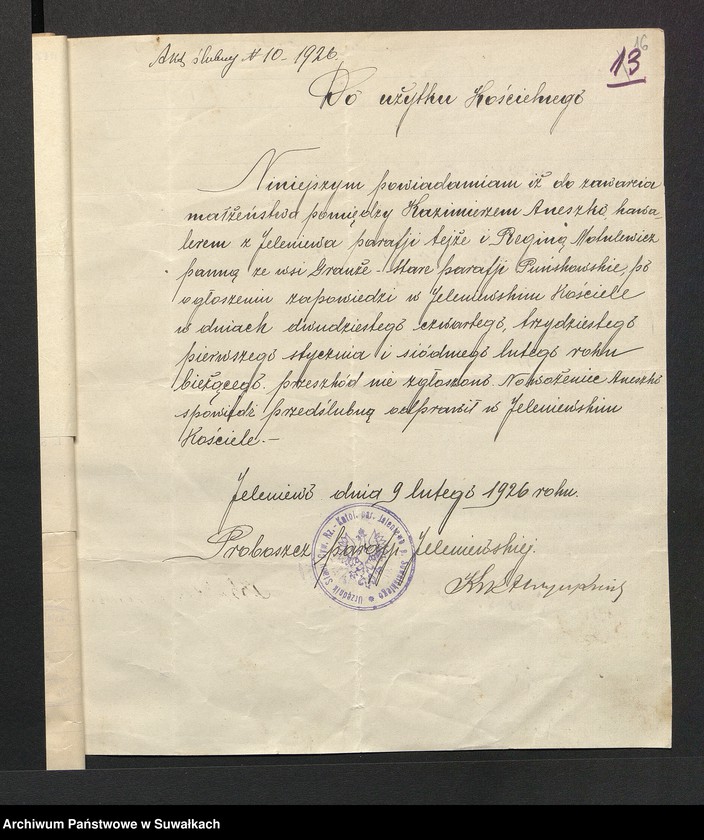 Akt ślubny № 10 - 1926
16
13
Do użytku Kościelnego
Niniejszym powiadamiam iż do zawarcia
małżeństwa pomiędzy Kazimierzem Aneszko, kawa
lerem z Jeleniewa parafji tejże i Reginą Matulewicz
panną ze wsi Grauże - Stare parafji Puńskowskiej, po
ogłoszeniu zapowiedzi w Jeleniewskim Kościele
w dniach dwudziestego czwartego, trzydziestego
pierwszego stycznia i siódmego lutego roku
bieżącego przeszkód nie zgłoszono. Nowożeniec Aneszko
spowiedź przedślubną odprawił w Jeleniewskim
Kościele. -
Jeleniewo dnia 9 lutego 1926 roku.
Proboszcz parafji Jeleniewskiej.
Archiwum Państwowe w Suwałkach